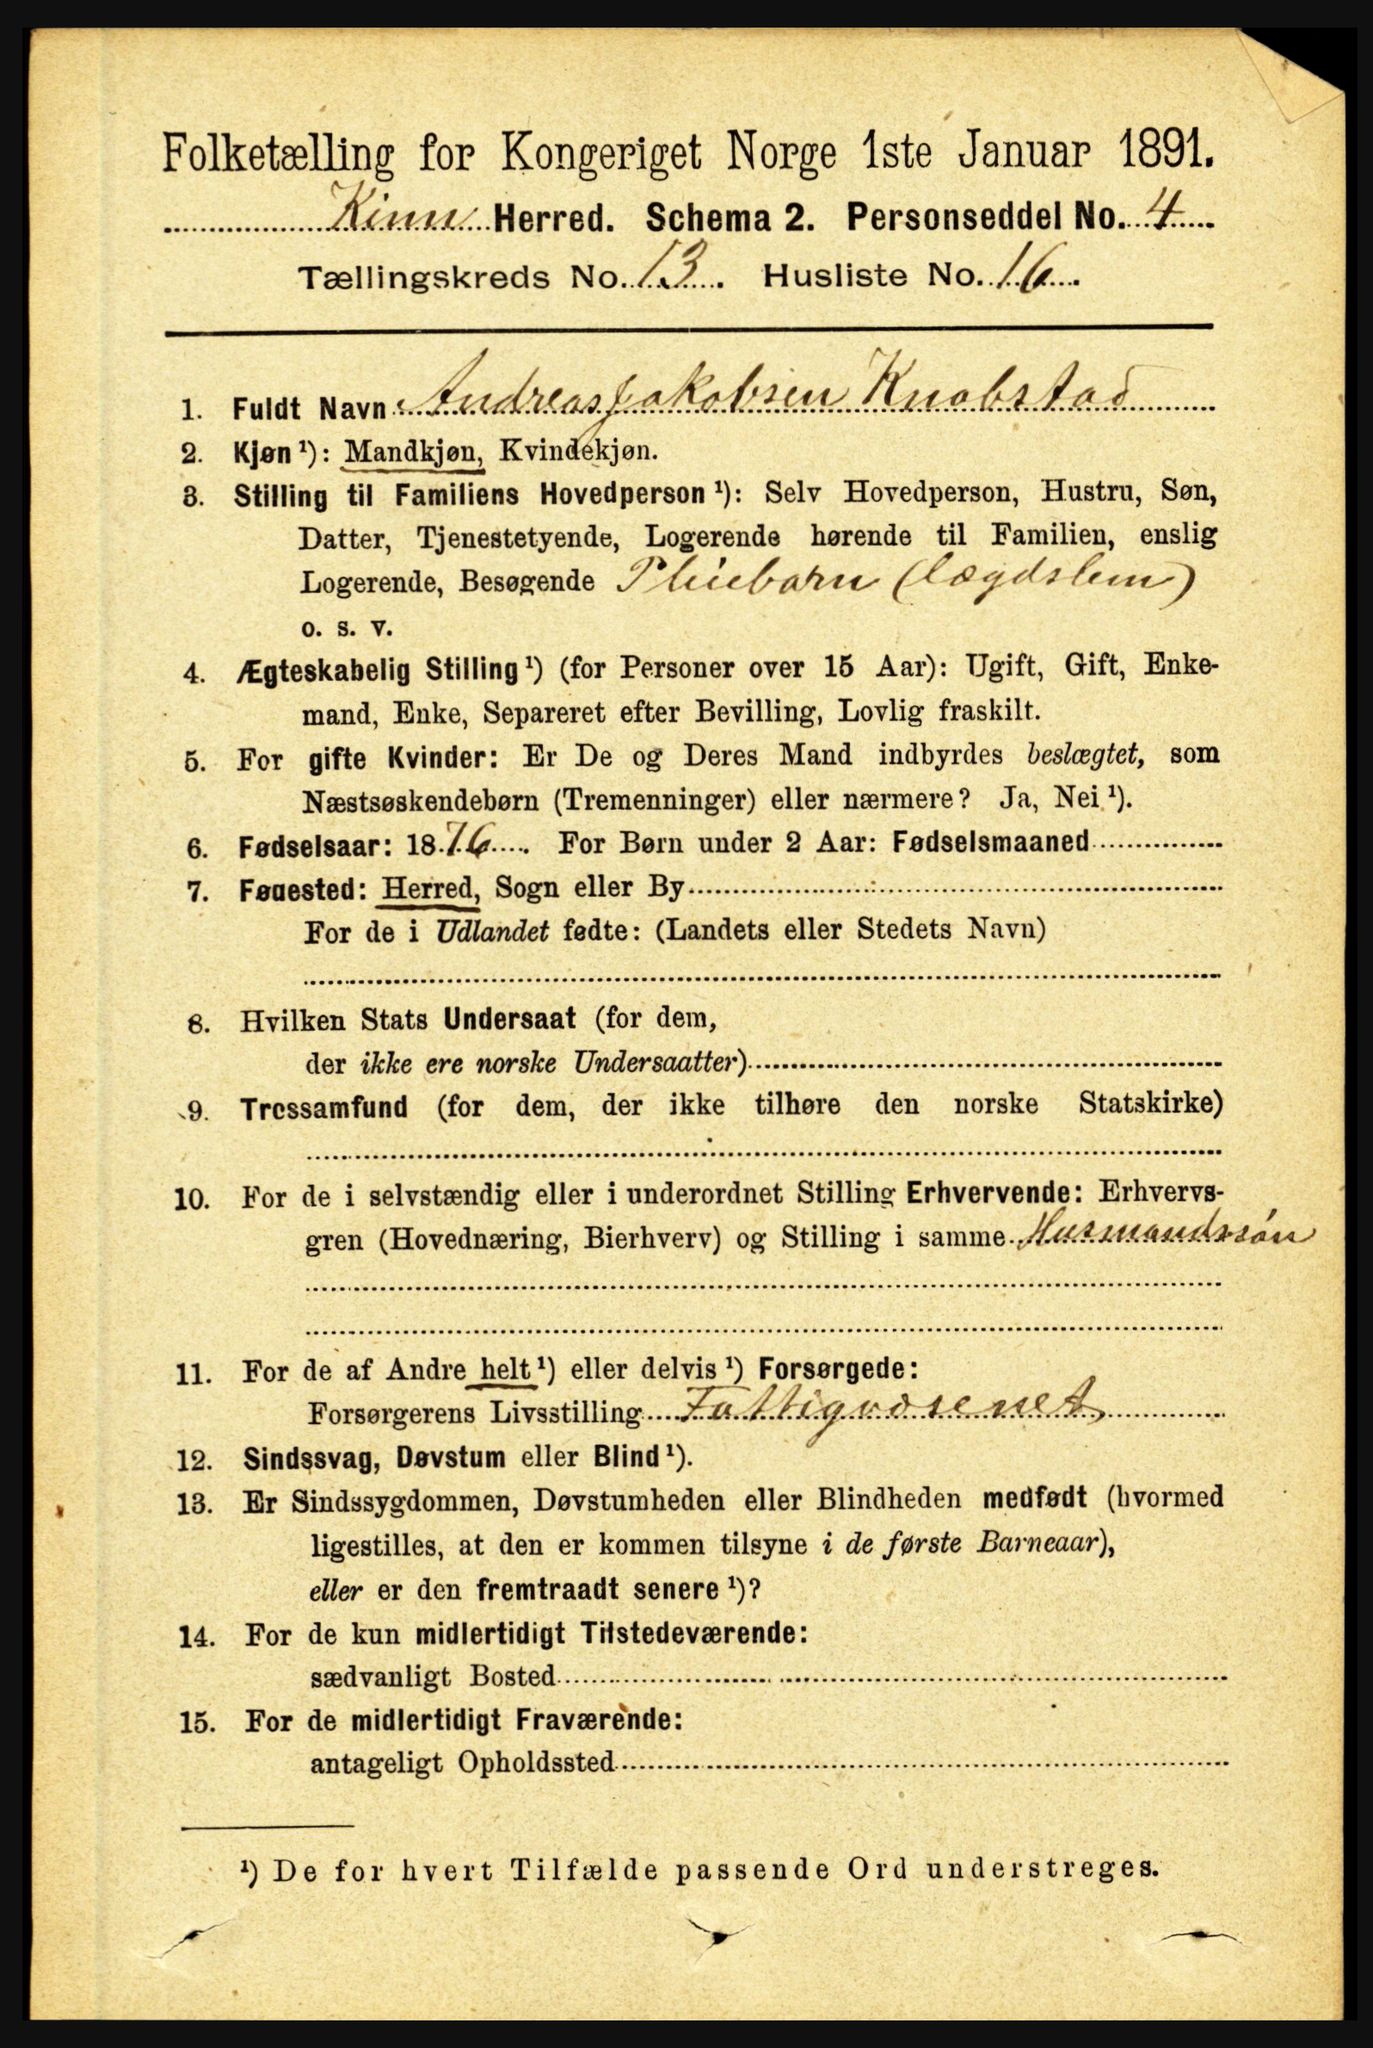 Folketælling for Kongeriget Norge 1ste Januar 1891.
Kinn Herred. Schema 2. Personseddel No. 4
Tællingskreds No. 13. Husliste No. 16.
1. Fuldt Navn Andreas Jakobsen Knabstad
2. Kjøn ¹): Mandkjøn, Kvindekjøn.
3. Stilling til Familiens Hovedperson ¹): Selv Hovedperson, Hustru, Søn,
Datter, Tjenestetyende, Logerende hørende til Familien, enslig
Logerende, Besøgende Pleiebarn (lægdslem)
o. s. v.
4. Ægteskabelig Stilling ¹) (for Personer over 15 Aar): Ugift, Gift, Enke-
mand, Enke, Separeret efter Bevilling, Lovlig fraskilt.
5. For gifte Kvinder: Er De og Deres Mand indbyrdes beslægtet, som
Næstsøskendebørn (Tremenninger) eller nærmere? Ja, Nei ¹).
6. Fødselsaar: 1876. For Børn under 2 Aar: Fødselsmaaned
7. Føuested: Herred, Sogn eller By
For de i Udlandet fødte: (Landets eller Stedets Navn)
8. Hvilken Stats Undersaat (for dem,
der ikke ere norske Undersaatter)
9. Trossamfund (for dem, der ikke tilhøre den norske Statskirke)
10. For de i selvstændig eller i underordnet Stilling Erhvervende: Erhvervs-
gren (Hovednæring, Bierhverv) og Stilling i samme Husmandssøn
11. For de af Andre helt ¹) eller delvis ¹) Forsørgede:
Forsørgerens Livsstilling Fattigvæsenet
12. Sindssvag, Døvstum eller Blind ¹).
13. Er Sindssygdommen, Døvstumheden eller Blindheden medfødt (hvormed
ligestilles, at den er kommen tilsyne i de første Barneaar),
eller er den fremtraadt senere ¹)?
14. For de kun midlertidigt Tilstedeværende:
sædvanligt Bosted
15. For de midlertidigt Fraværende:
antageligt Opholdssted
¹) De for hvert Tilfælde passende Ord understreges.